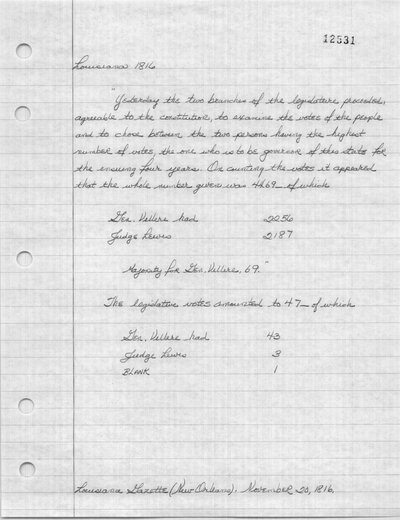 12531
Louisiana 1816
"Yesterday the two branches of the legislature proceeded,
agreeable to the constitution, to examine the votes of the people
and to chose between the two persons having the highest
number of votes, the one who is to be governor of this state for
the ensuing four years. On counting the votes it appeared
that the whole number given was 4469 of which
Gen. Villere had 2256
Judge Lewis 2187
Majority for Gen. Villere, 69."
The legislative votes amounted to 47 of which
Gen. Villere had 43
Judge Lewis 3
BLANK 1
Louisiana Gazette (New Orleans). November 20, 1816.